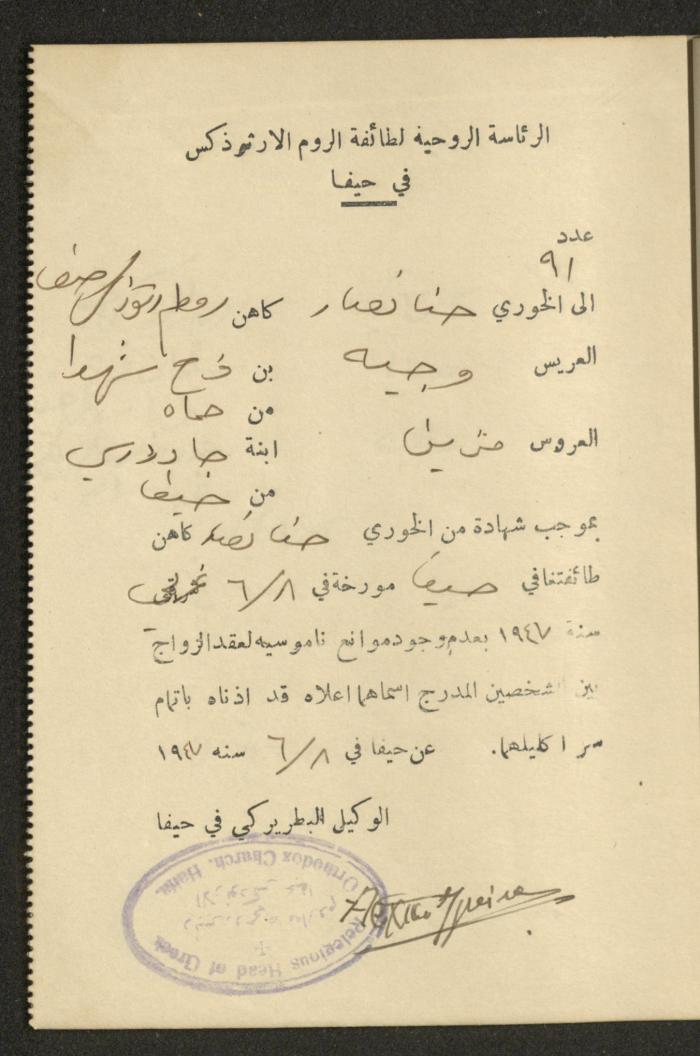 الرئاسة الروحية لطائفة الروم الارثوذكس
في حيفا
عدد
٩١
الى الخوري حنا نصار كاهن روم ارثوذكس حيفا
العريس وجيه بن فرح شهدا
من حماه
العروس ابنة
من حيفا
بموجب شهادة من الخوري حنا نصار كاهن
طائفتنا في حيفا مورخة في ٦/٨
سنة ١٩٤٧ بعدم وجود موانع ناموسيه لعقد الزواج
بين الشخصين المدرج اسماهما اعلاه قد اذناه باتمام
سر اكليلهما. عن حيفا في ٦/٨ سنه ١٩٤٧
الوكيل البطريركي في حيفا
Relegious Head of Greek
Orthodox Church, Haifa.